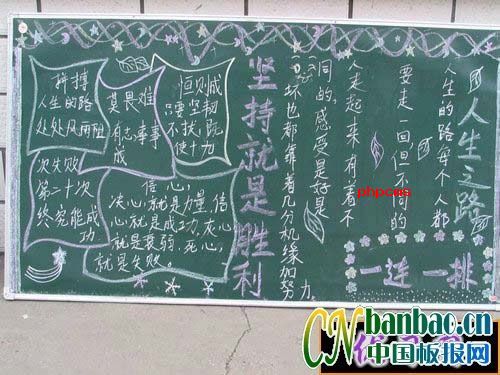 人生之路
人生的路每个人都
要走一回,但不同的
人走起来有着不
同的感受,是好是
坏也都靠着几分机缘加努力
一连一排
坚持就是胜利
拼搏
人生的路
处处风雨阻
莫畏难
有志事事
成
恒则成
只要坚韧
不拔
使十力
次失败
第二十次
终究能成
功
信心,
决心就是力量,信
心就是成功,灰心
就是衰弱,死心
就是失败。
phpcms
CNbanbao.cn
中国板报网